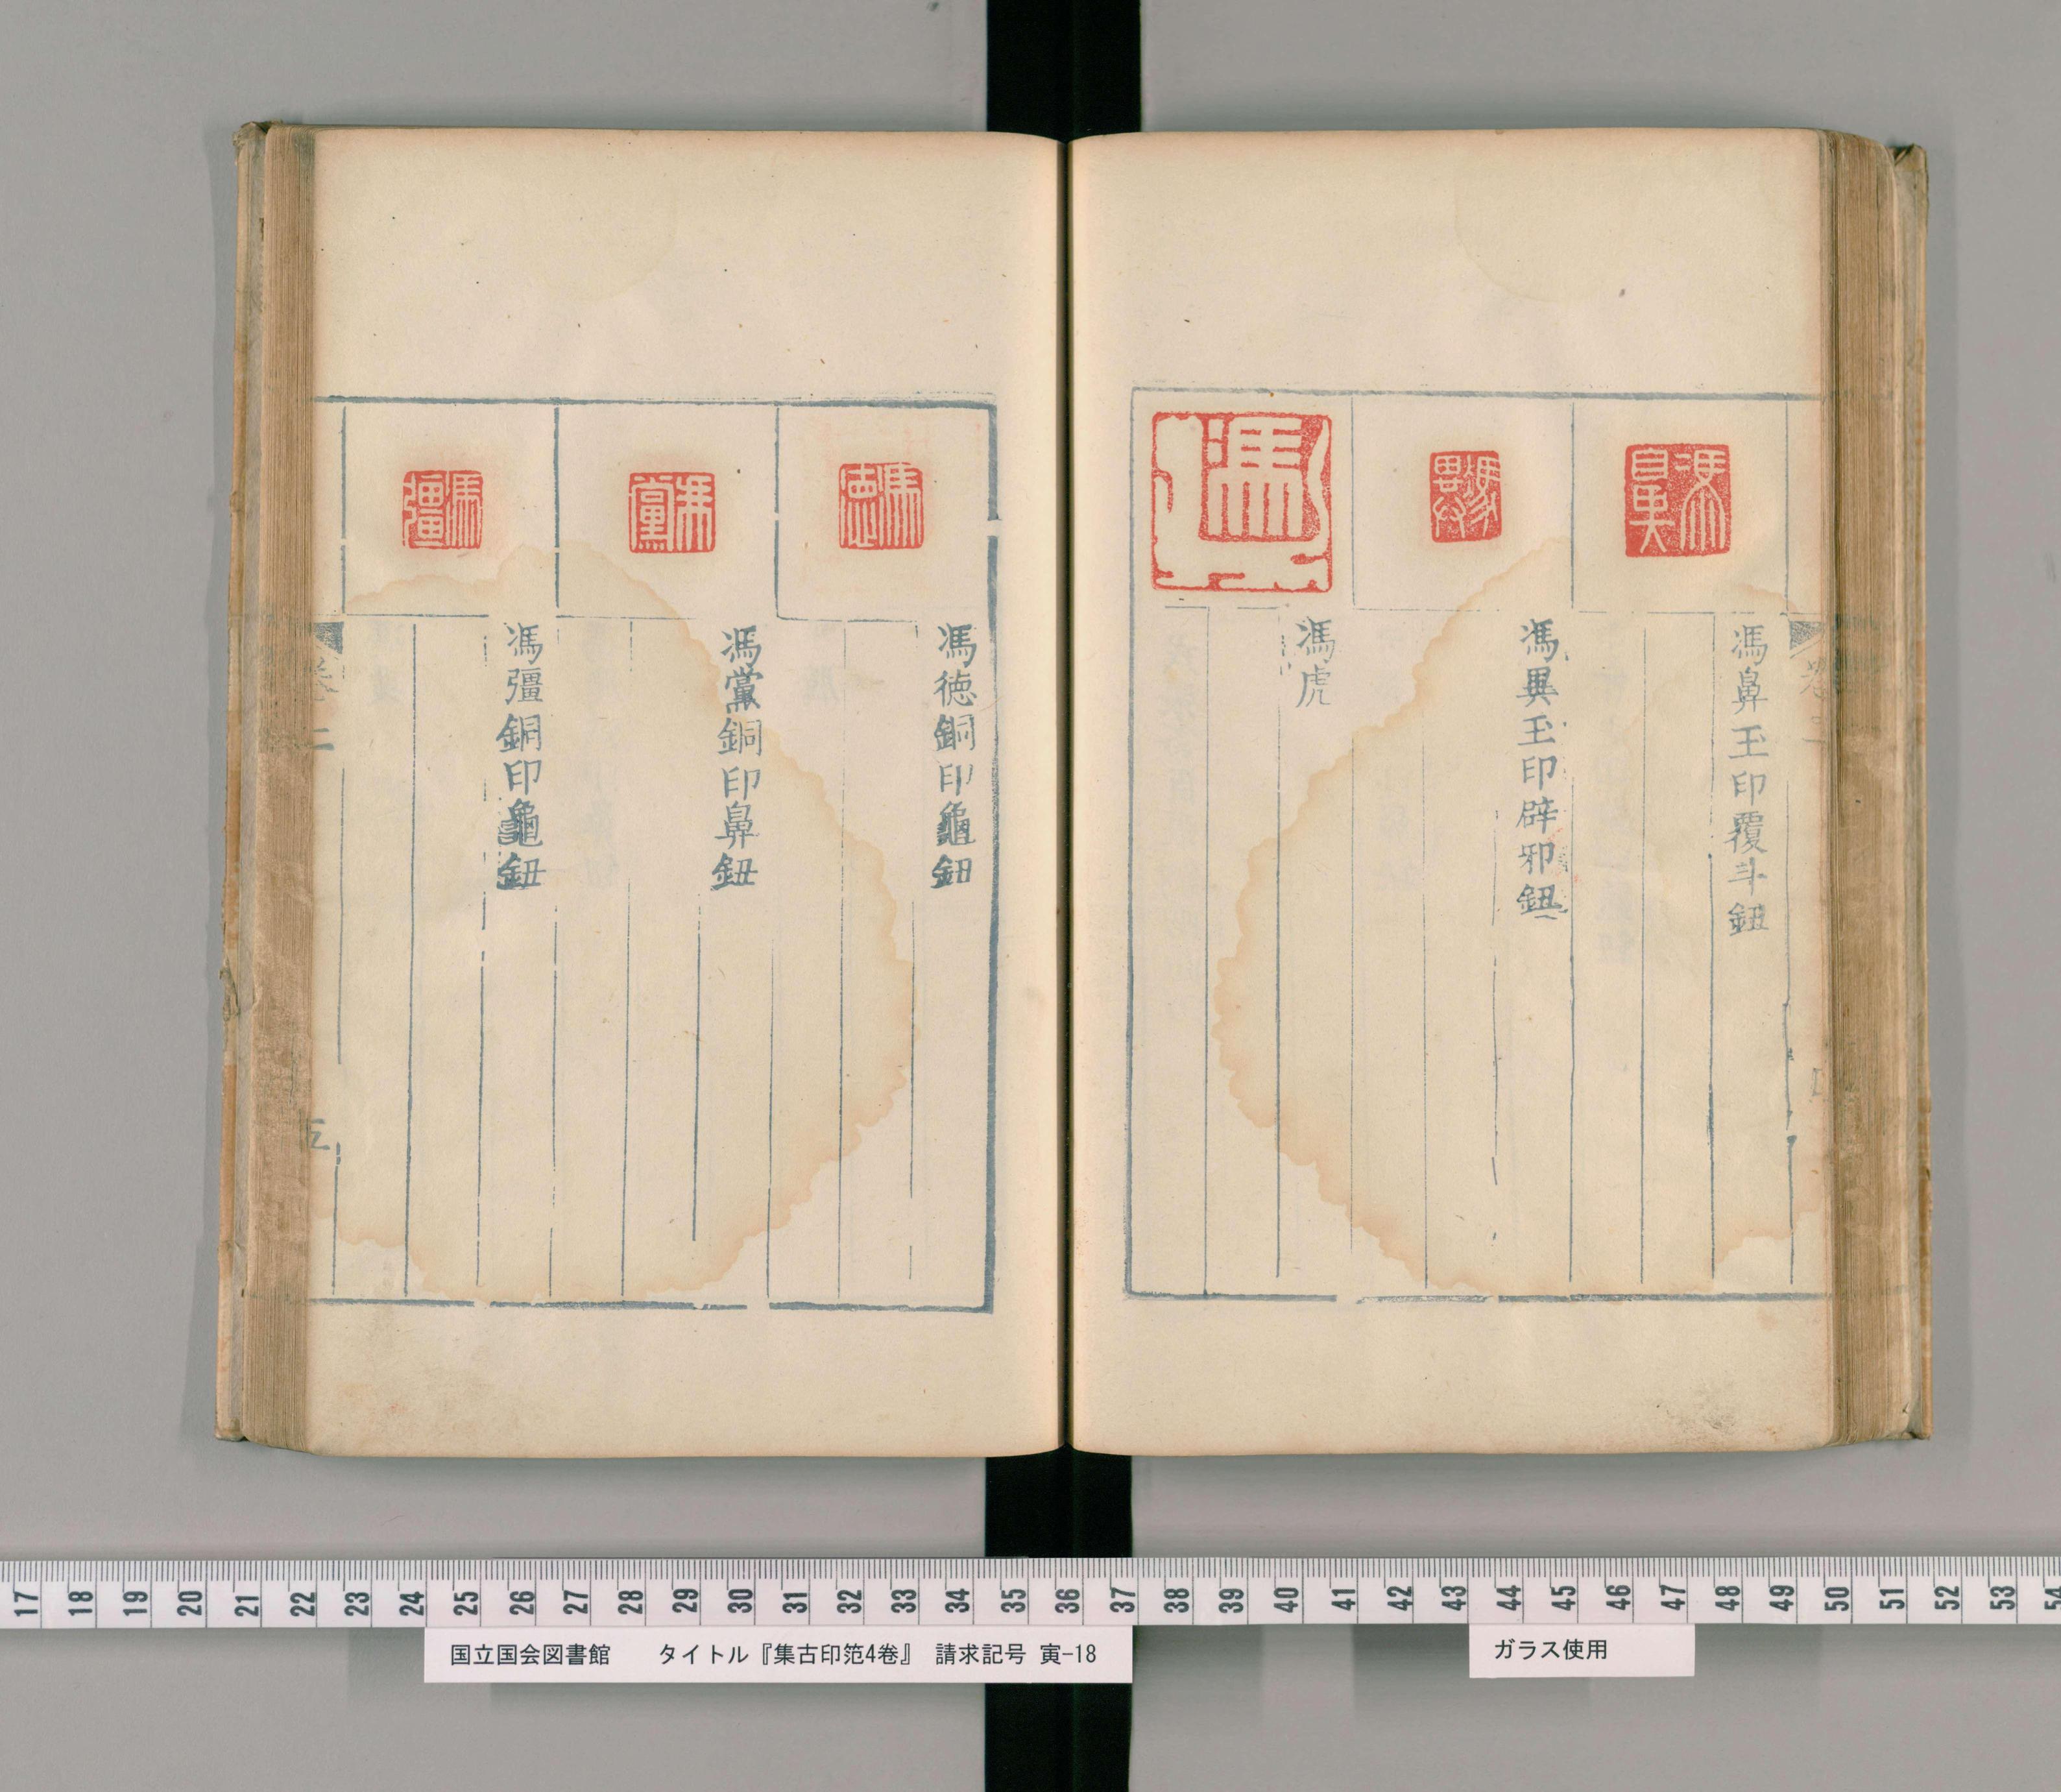 馮鼻玉印覆斗鈕
馮異玉印辟邪鈕
馮虎
馮徳銅印龜鈕
馮黨銅印鼻鈕
馮彊銅印龜鈕
卷二
五
17 18 19 20 21 22 23 24 25 26 27 28 29 30 31 32 33 34 35 36 37 38 39 40 41 42 43 44 45 46 47 48 49 50 51 52 53 54
国立国会図書館 タイトル『集古印笵4巻』 請求記号 寅-18
ガラス使用